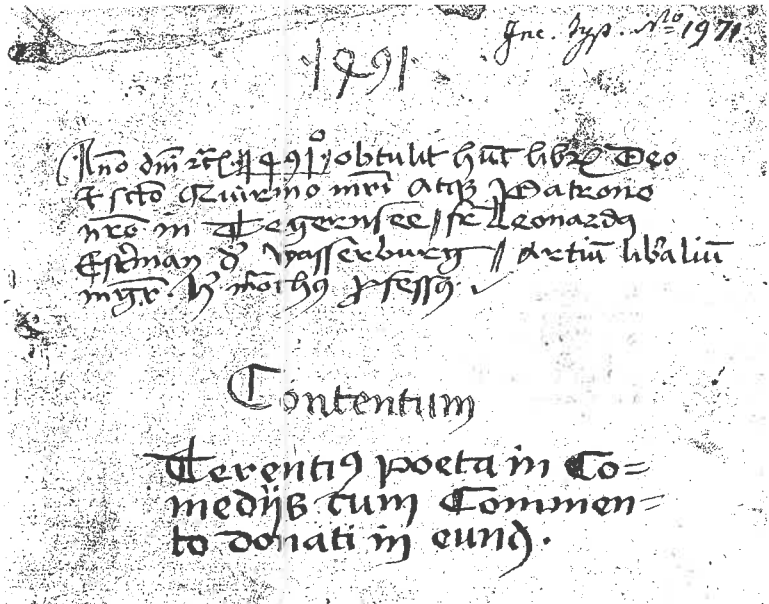 Inc. Typ. No 1971
·1491·
Año dm̄ ꝛc̄ 1491º obtulit hūc libꝝ Deo
et scto Quirino mr̄i Atqꝫ Patrono
nr̄o in Tegernsee // fr̄ Leonardꝰ
Estermañ dē Wasserburg // Artiū libaliū
mgr̄. hꝰ mōchꝰ ꝓfessꝰ
Contentum
Terentiꝰ poeta in Co=
medijs cum Commen=
to donati in eund̄.